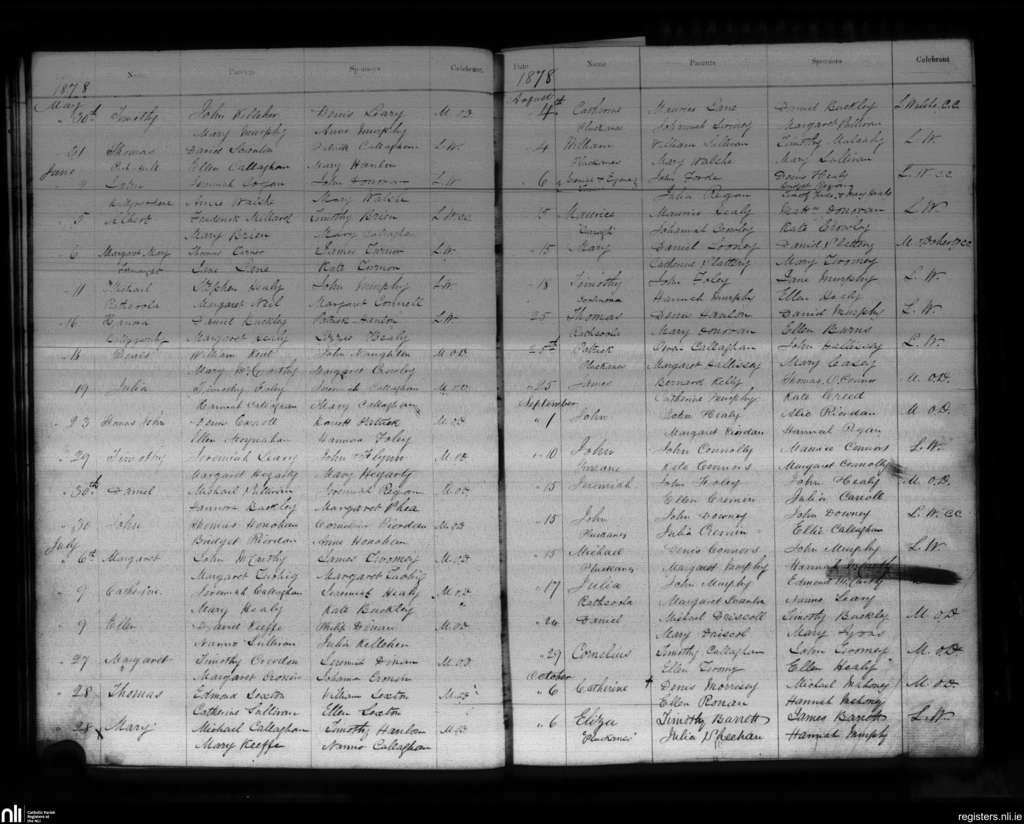 1878
Name Parents Sponsors Celebrant
May
30th Timothy John Kelleher Denis Leary M. OD
Mary Murphy Anne Murphy
31 Thomas David Scanlon Callaghan L.W.
Ellen Callaghan Mary Hanlon
June
Jeremiah John Donovan L.W
Annie Walsh Mary Walsh
5 Albert Frederick Millard Timothy Brien L.W.cc
Mary Brien Mary
6 Margaret Mary Thomas James L.W
Jane Lane Kate
11 Michael Stephen Healy John Murphy L.W
Rathcoola Margaret Neil Margaret Connell
16 Hanna Daniel Buckley Patrick Hanlon L.W
Margaret Healy Lizzie Healy
18 Denis William Kent John Naughton M.O.D
Mary McCarthy Margaret Crowley
19 Julia Timothy Foley Jeremiah Callaghan M.O.D
Hannah Callaghan Mary Callaghan
23 John Denis Carroll Patrick M.O.D
Ellen Moynahan Hannora Foley
29 Timothy Jeremiah Leary John Flynn M.O.D
Margaret Hegarty Mary Hegarty
30th Daniel Michael Sullivan Jeremiah Regan M.O.D
Hannora Buckley Margaret Shea
30 John Thomas Honohan Cornelius Riordan M.O.D
Bridget Riordan Anne Honohan
July
6th Margaret John McCarthy James Twomey M.O.D
Margaret Margaret
9 Catherine Jeremiah Callaghan Jeremiah Healy M.O.D
Mary Healy Kate Buckley
9 Ellen Daniel Keeffe Philip Dinan M.O.D
Nanno Sullivan Julia Kelleher
27 Margaret Timothy Jeremiah Dinan M.O.D
Margaret Cronin Johanna Cronin
28 Thomas Edmond Sexton William Sexton M.O.D
Catherine Sullivan Ellen Sexton
28 Mary Michael Callaghan Timothy Hanlon M.O.D
Mary Keeffe Nanno Callaghan
Date Name Parents Sponsors Celebrant
1878
August
4th Catherine Maurice Lane Daniel Buckley L Walsh, C.C.
Pluckanes Johannah Looney Margaret Sullivan
4 William William Sullivan Timothy Mulcahy L.W.
Pluckanes Mary Walshe Mary Sullivan
6 John Forde Denis Healy L.W.cc
Julia Regan
15 Maurice Maurice Healy Donovan L.W.
Johannah Crowley Kate Crowley
15 Mary Daniel Looney David Slattery M.
Catherine Slattery Mary Twomey
18 Timothy John Foley Jane Murphy L.W.
Hannah Murphy Ellen Healy
25 Thomas Denis Hanlon David Murphy L.W.
Rathcoola Mary Donovan Ellen Barns
25th Patrick Owen Callaghan John Hallissey L.W.
Pluckanes Margaret Hallissey Mary Casey
25 James Bernard Kelly Thomas O'Connor M.O.D.
Catherine Murphy Kate Creed
September
1 John John Healy Riordan M.O.D.
Margaret Riordan Hannah Regan
10 John John Connolly Maurice Connors L.W.
Kate Connors Margaret Connolly
15 Jeremiah John Foley John Healy M.O.D.
Ellen Cremen Julia Carroll
15 John John Downey John Downey L.W.CC
Pluckanes Julia Cremin Ellie Callaghan
15 Michael Denis Connors John Murphy L.W.
Pluckanes Margaret Murphy Hannah
17 Julia John Murphy Edmond McCarthy
Rathcoola Margaret Scanlan Nanno Leary
24 Daniel Michael Driscoll Timothy Buckley M.O.D.
Mary Driscol Mary Lyons
29 Cornelius Timothy Callaghan John Twomey M.O.D.
Ellen Twomey Ellen Healy
October
6 Catherine + Denis Morrisey Michael Mahoney M.O.D.
Ellen Ronan Hannah Mahony
6 Eliza Timothy Barrett James Barrett L.W.
"Pluckanes" Julia Sheehan Hannah Murphy
nli Catholic Parish Registers at the NLI
registers.nli.ie